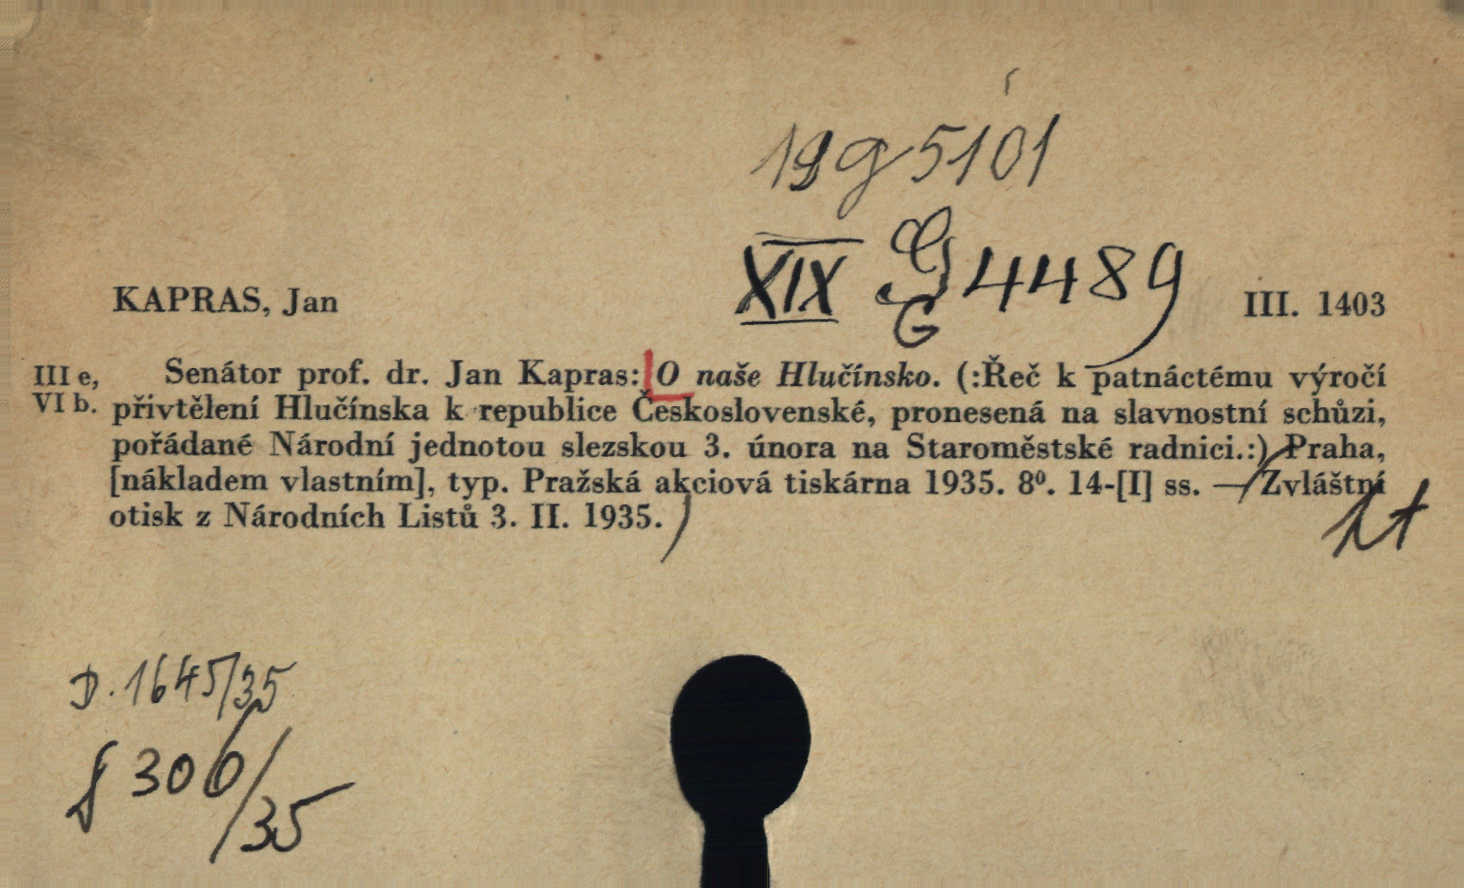 19 g 5101
XIX G 4489
G
KAPRAS, Jan
III. 1403
III e,
VI b.
Senátor prof. dr. Jan Kapras: O naše Hlučínsko. (:Řeč k patnáctému výročí
přivtělení Hlučínska k republice Československé, pronesená na slavnostní schůzi,
pořádané Národní jednotou slezskou 3. února na Staroměstské radnici.:) Praha,
[nákladem vlastním], typ. Pražská akciová tiskárna 1935. 8⁰. 14-[I] ss. — Zvláštní
otisk z Národních Listů 3. II. 1935.)
D. 1645/35
§ 306/35